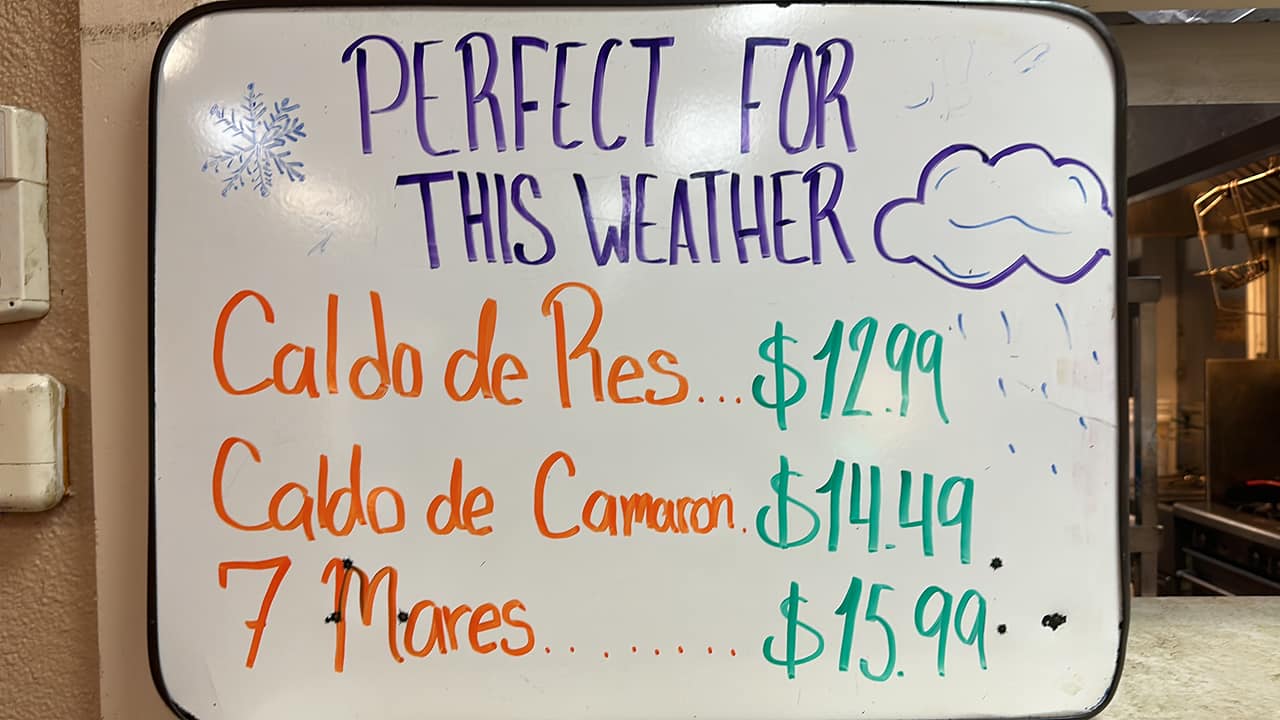 PERFECT FOR
THIS WEATHER
Caldo de Res... $12.99
Caldo de Camaron. $14.49
7 Mares......... $15.99